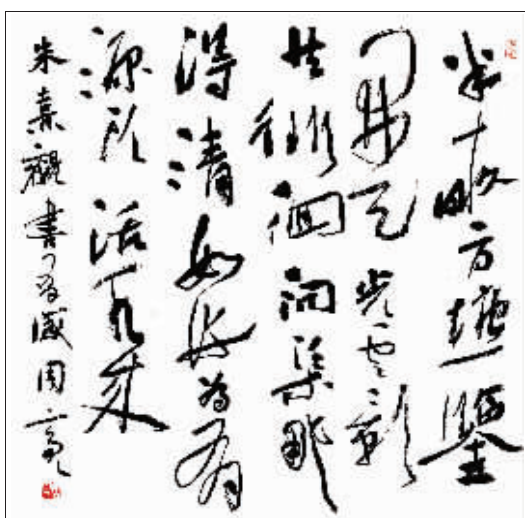 半畝方塘一鑒
開天光雲影
共徘徊問渠那
得清如許為有
源頭活水來
朱熹觀書有感周